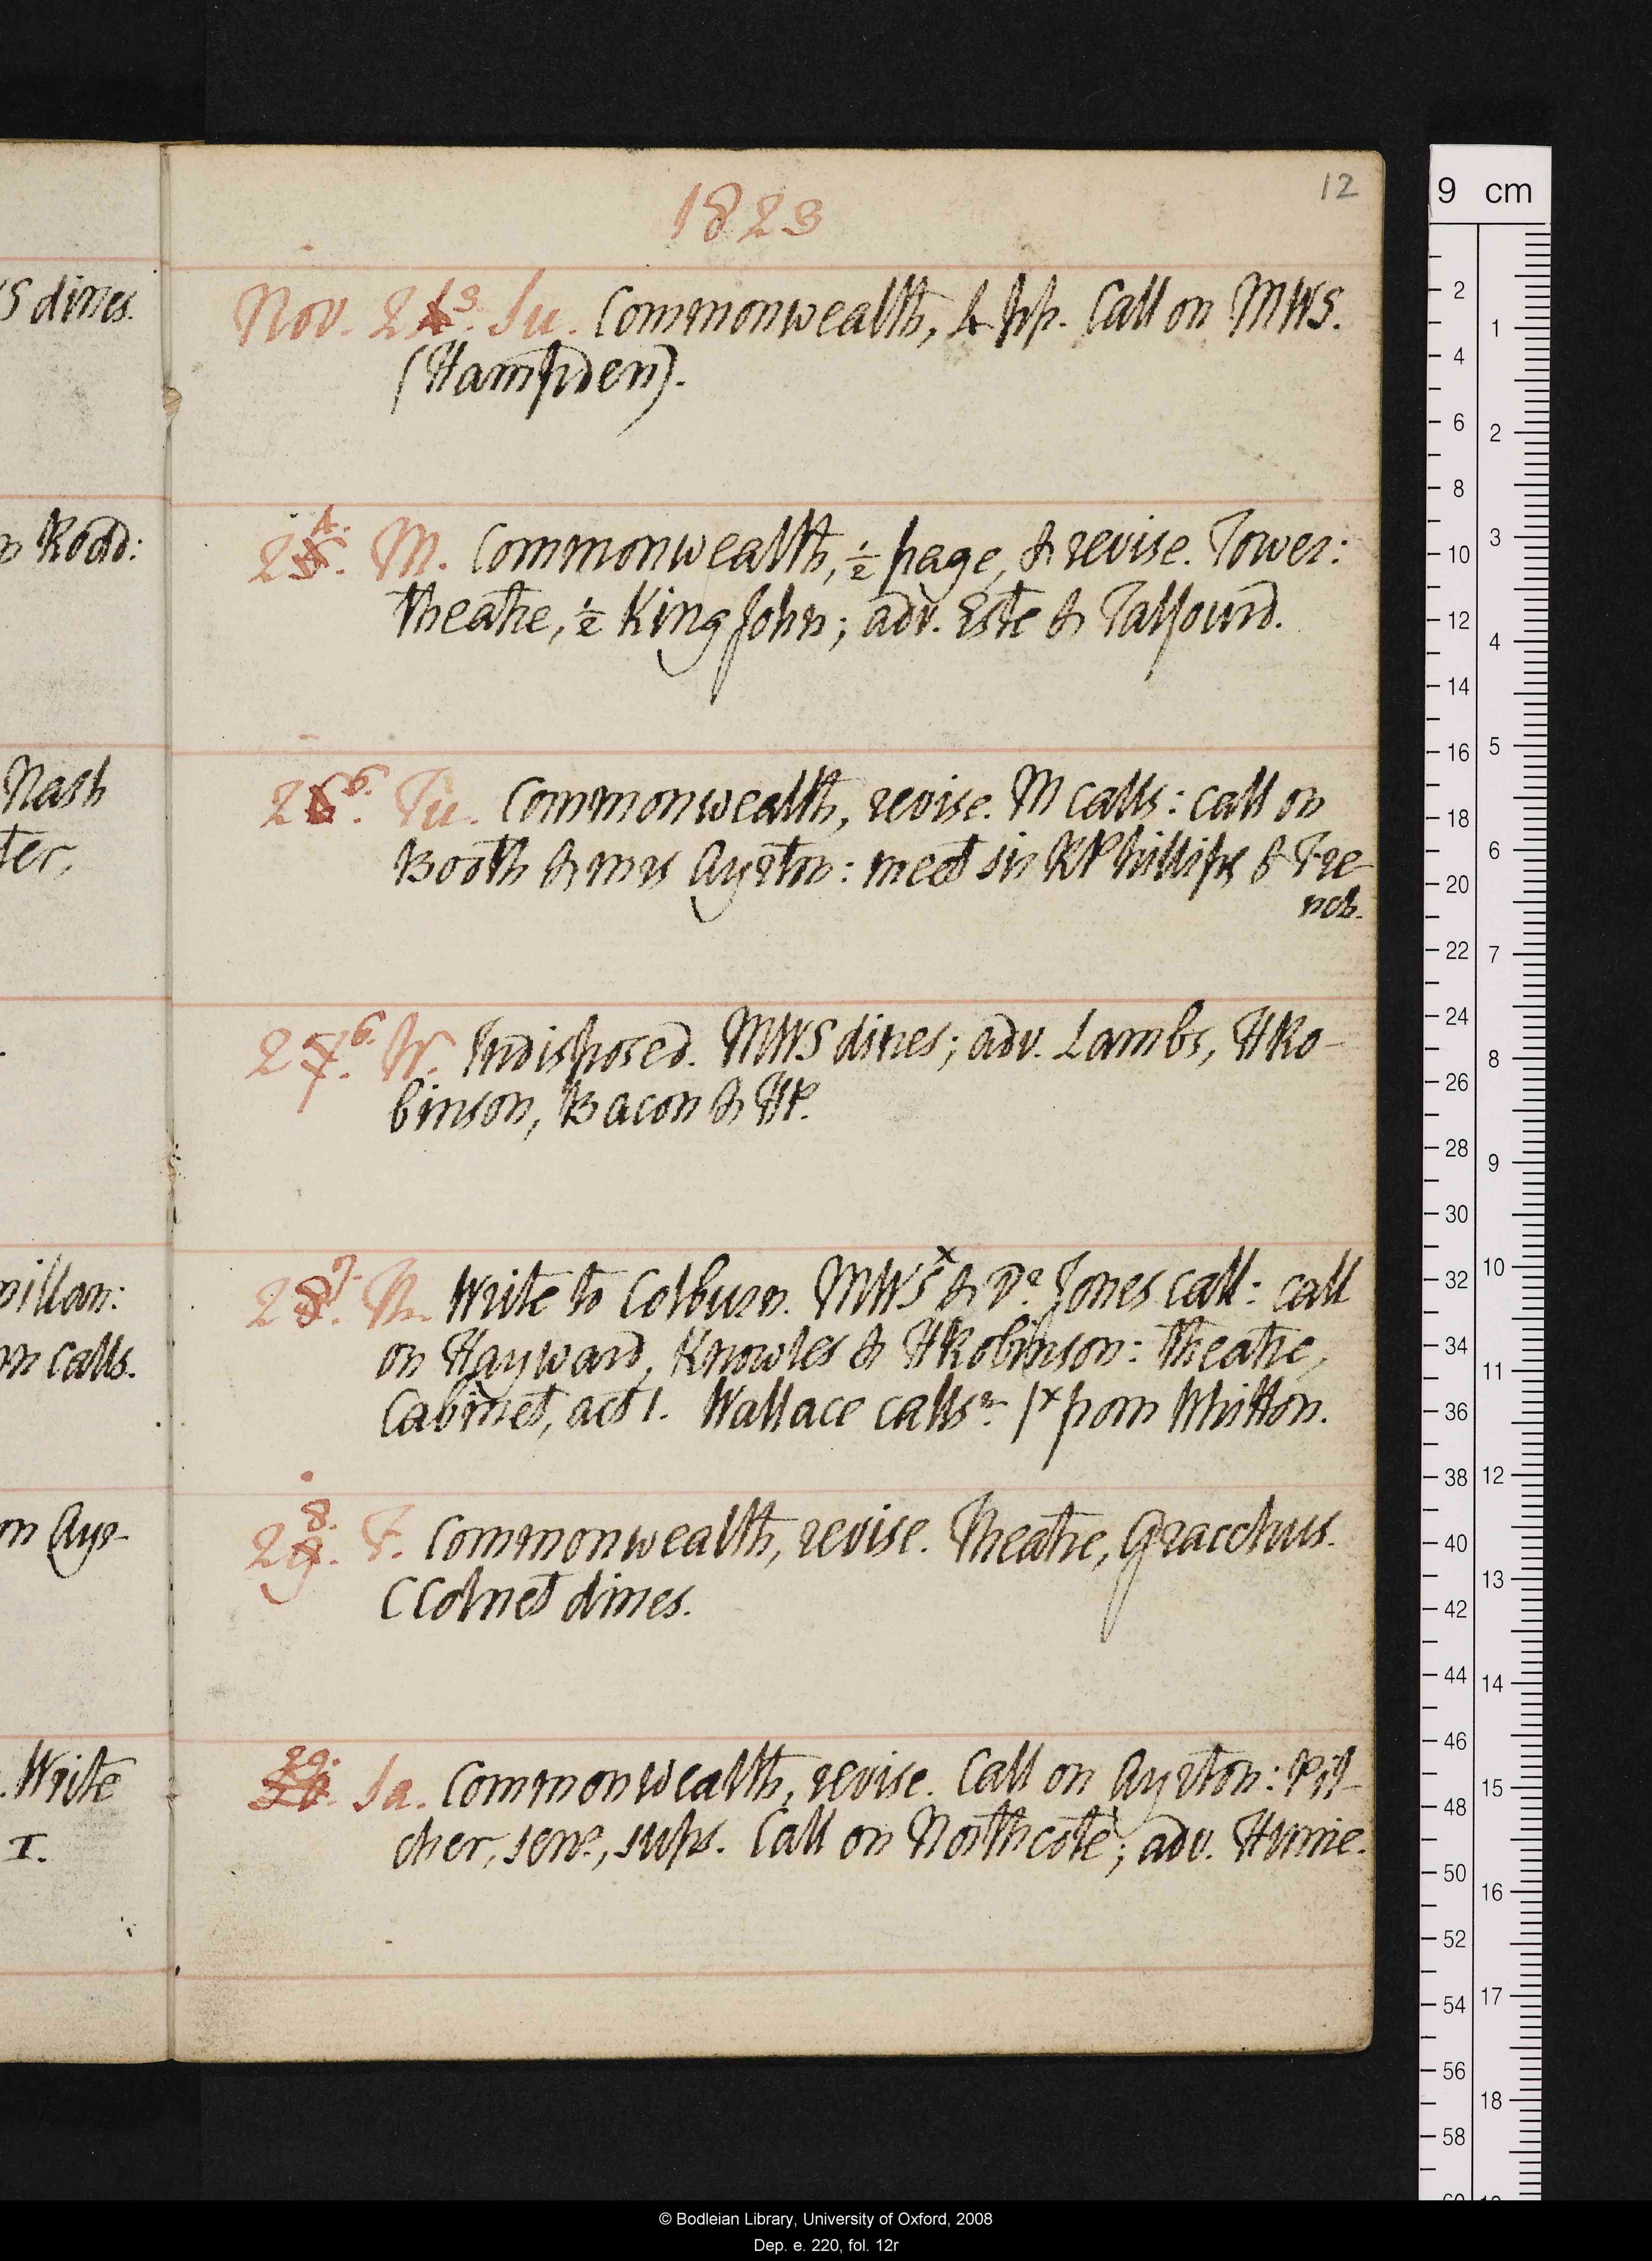 12
1823
S dines.
Nov. 24 3. Su. Commonwealth, 4 pp. Call on MWS.
(Hampden).
Road:
25 4. M. Commonwealth, ½ page, & revise. Tower:
theatre, ½ King John; adv. Este & Talfourd.
Nash
ter,
26 Tu. Commonwealth, revise. M calls: call on
Booth & mrs Ayrton: meet sir R Phillips & Fre
nch.
27 6. W. Indisposed. MWS dines; adv. Lambs, HRo-
binson, Bacon & HP.
millan:
nn calls.
28 7. Th. Write to Colburn. MWS x & Dr. Jones call: call
on Hayward, Knowles & HRobinson: theatre,
Cabinet, act 1. Wallace calls n. x from Whitton.
on Ayr-
29 8. F. Commonwealth, revise. Theatre, Gracchus.
CColnet dines.
. Write
I.
30 29. Sa. Commonwealth, revise. Call on Ayrton: Pil-
cher, senr., sups. Call on Northcote; adv. Hume.
9 cm
2 4 6 8 10 12 14 16 18 20 22 24 26 28 30 32 34 36 38 40 42 44 46 48 50 52 54 56 58
1 2 3 4 5 6 7 8 9 10 11 12 13 14 15 16 17 18
© Bodleian Library, University of Oxford, 2008
Dep. e. 220, fol. 12r